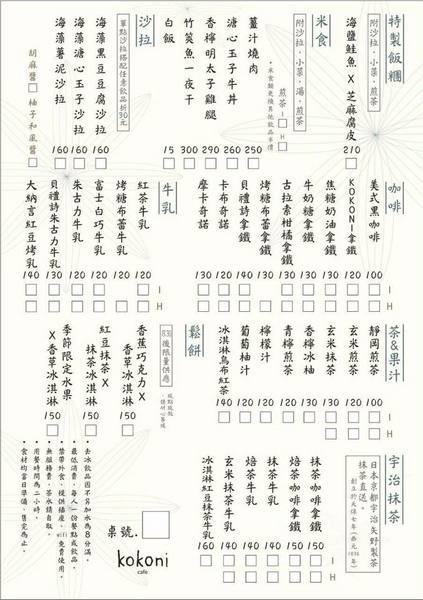 特製飯糰
附沙拉·小菜·煎茶
海鹽鮭魚X芝麻腐皮 210
米食
附沙拉·小菜·湯·煎茶
薑汁燒肉 250
溏心玉子牛丼 260
香檸明太子雞腿 290
竹筴魚一夜干 300
白飯 15
煎茶 I H
沙拉
單點沙拉搭配任意飲品折30元
海藻黑豆豆腐沙拉 160
海藻溏心玉子沙拉 160
海藻薯泥沙拉 160
胡麻醬 柚子和風醬
咖啡
I H
美式黑咖啡 100
KOKONI拿鐵 120
焦糖奶油拿鐵 130
牛奶糖拿鐵 130
古拉索柑橘拿鐵 130
烤糖布蕾拿鐵 130
貝禮詩拿鐵 140
卡布奇諾 120
摩卡奇諾 130
牛乳
I H
紅茶牛乳 120
烤糖布蕾牛乳 120
富士白巧牛乳 120
朱古力牛乳 120
貝禮詩朱古力牛乳 130
大納言紅豆烤乳 140
茶&果汁
I H
靜岡煎茶 100
玄米煎茶 120
玄米抹茶 130
香檸冰柚 130
青檸煎茶 130
檸檬汁 120
葡萄柚汁 120
冰淇淋烏布紅茶 140
鬆餅
8:30後限量供應
香蕉巧克力X香草冰淇淋 150
紅豆抹茶X抹茶冰淇淋 150
季節限定水果X香草冰淇淋 150
宇治抹茶
日本京都宇治矢野製茶
抹茶直送。
I H
抹茶咖啡拿鐵 150
焙茶咖啡拿鐵 150
抹茶牛乳 140
焙茶牛乳 140
玄米抹茶牛乳 140
冰淇淋紅豆抹茶牛乳 160
桌號.
kokoni
cafe
·去冰飲品因不另加水為8分滿。
·最低消費,每人一份餐點或飲品。
·禁帶外食、提供插座、wifi免費使用。
·無服務費,茶水請自取
·用餐時間為二小時。
·食材均當日準備,售完為止。